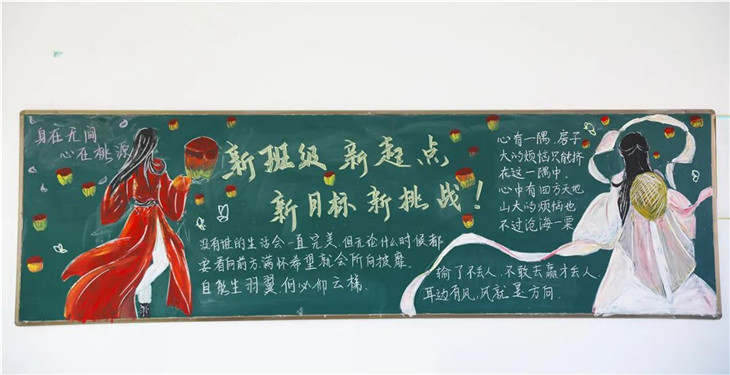 身在无间
心在桃源
新班级 新起点
新目标 新挑战！
没有谁的生活会一直完美，但无论什么时候都
要看向前方，满怀希望就会所向披靡。
自能生羽翼，何必仰云梯。
心有一隅，房子
大的烦恼只能挤
在这一隅中，
心中有四方天地，
山大的烦恼也
不过沧海一粟
输了不丢人，不敢去赢才丢人，
耳边有风，风就是方向。